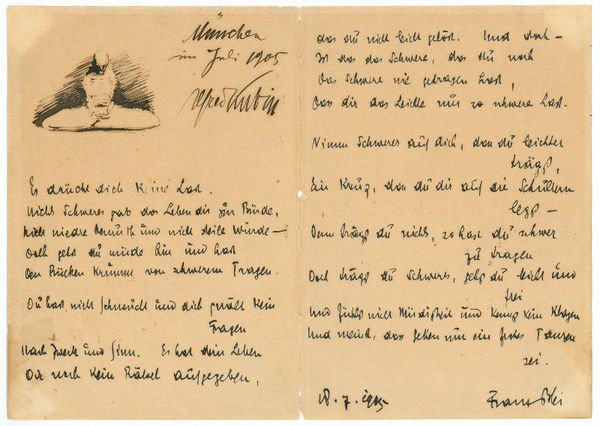 München
im Juli 1905
Alfred Kubin
Es drückt dich keine Last.
Nichts Schweres gab das Leben dir zur Bürde,
nicht niedre Demuth und nicht steile Würde –
Doch gehst du müde hin und hast
Den Rücken krumm von schwerem Tragen.
Du hast nicht Sehnsucht und dich quält kein
Fragen
Nach Zweck und Sinn. Es hat dein Leben
Dir noch kein Rätsel aufgegeben,
das du nicht leicht gelöst. Und doch –
Ist das das Schwere, das du noch
Das Schwere nie getragen hast,
Dass dir das Leichte nur so schwere Last.
Nimm Schweres auf dich, dan du leichter
trägst,
Ein Kreuz, dan du dir auf die Schultern
legst –
Denn trägst du nichts, so hast du schwer
zu tragen
Doch trägst du Schweres, gehst du leicht und
frei
Und fühlst nicht Müdigkeit und kennst kein Klagen
Und meinst, das Gehen nur ein frohes Tanzen
sei.
18. 7. 1905
Franz Blei